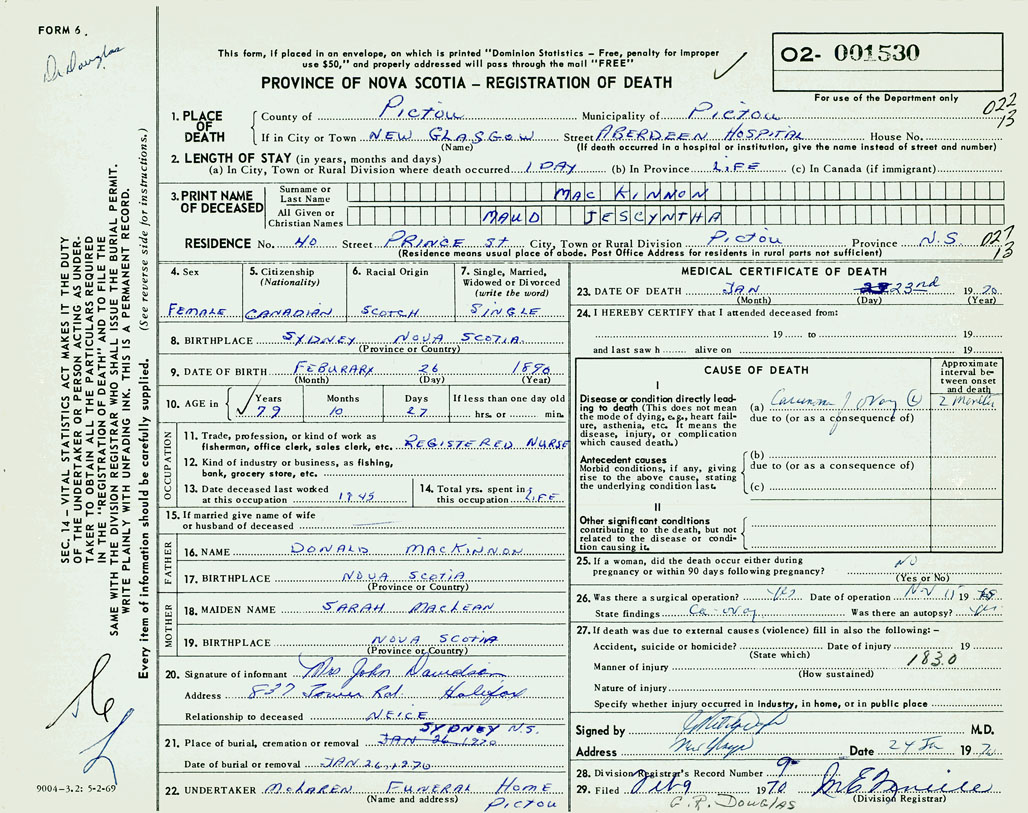 FORM 6.
Dr Douglas
This form, if placed in an envelope, on which is printed "Dominion Statistics – Free, penalty for improper
use $50," and properly addressed will pass through the mail "FREE"
PROVINCE OF NOVA SCOTIA – REGISTRATION OF DEATH
02- 001530
For use of the Department only
022
13
1. PLACE OF DEATH
County of PICTOU Municipality of PICTOU
If in City or Town NEW GLASGOW Street ABERDEEN HOSPITAL House No.
(Name) (If death occurred in a hospital or institution, give the name instead of street and number)
2. LENGTH OF STAY (in years, months and days)
(a) In City, Town or Rural Division where death occurred 1 DAY (b) In Province LIFE (c) In Canada (if immigrant)
3. PRINT NAME OF DECEASED
Surname or Last Name MAC KINNON
All Given or Christian Names MAUD JESCYNTHA
RESIDENCE No. 40 Street PRINCE ST. City, Town or Rural Division PICTOU Province N.S.
027
13
(Residence means usual place of abode. Post Office Address for residents in rural parts not sufficient)
4. Sex
FEMALE
5. Citizenship
(Nationality)
CANADIAN
6. Racial Origin
SCOTCH
7. Single, Married,
Widowed or Divorced
(write the word)
SINGLE
8. BIRTHPLACE SYDNEY NOVA SCOTIA
(Province or Country)
9. DATE OF BIRTH FEBURARY 26 1890
(Month) (Day) (Year)
10. AGE in Years Months Days If less than one day old
79 10 27 hrs. or min.
OCCUPATION
11. Trade, profession, or kind of work as
fisherman, office clerk, sales clerk, etc. REGISTERED NURSE
12. Kind of industry or business, as fishing,
bank, grocery store, etc.
13. Date deceased last worked
at this occupation 1945
14. Total yrs. spent in
this occupation LIFE
15. If married give name of wife
or husband of deceased
FATHER
16. NAME DONALD MACKINNON
17. BIRTHPLACE NOVA SCOTIA
(Province or Country)
MOTHER
18. MAIDEN NAME SARAH MACLEAN
19. BIRTHPLACE NOVA SCOTIA
(Province or Country)
20. Signature of informant Mrs John Davidson
Address 837 Tower Rd. Halifax
Relationship to deceased NEICE
SYDNEY N.S.
21. Place of burial, cremation or removal JAN 26 1970
Date of burial or removal JAN 26, 1970
22. UNDERTAKER MCLAREN FUNERAL HOME
(Name and address) PICTOU
MEDICAL CERTIFICATE OF DEATH
23. DATE OF DEATH JAN 23rd 1970
(Month) (Day) (Year)
24. I HEREBY CERTIFY that I attended deceased from:
19 to 19
and last saw h alive on 19
CAUSE OF DEATH
Approximate
interval be-
tween onset
and death
I
Disease or condition directly lead-
ing to death (This does not mean
the mode of dying, e.g., heart fail-
ure, asthenia, etc. It means the
disease, injury, or complication
which caused death.)
(a) Carcinoma of ovary (L) 2 Months
due to (or as a consequence of)
Antecedent causes
Morbid conditions, if any, giving
rise to the above cause, stating
the underlying condition last.
(b)
due to (or as a consequence of)
(c)
II
Other significant conditions
contributing to the death, but not
related to the disease or condi-
tion causing it.
25. If a woman, did the death occur either during
pregnancy or within 90 days following pregnancy? NO
(Yes or No)
26. Was there a surgical operation? yes Date of operation Nov 11 19
State findings Ca-ovary Was there an autopsy? yes
27. If death was due to external causes (violence) fill in also the following: –
Accident, suicide or homicide? Date of injury 19
(State which)
1830
Manner of injury
(How sustained)
Nature of injury
Specify whether injury occurred in industry, in home, or in public place
Signed by M.D.
Address New Glasgow Date 24 Jan 1970
28. Division Registrar's Record Number 9
29. Filed Feb 9 1970
(Division Registrar)
G. R. DOUGLAS
SEC. 14 – VITAL STATISTICS ACT MAKES IT THE DUTY
OF THE UNDERTAKER OR PERSON ACTING AS UNDER-
TAKER TO OBTAIN ALL THE PARTICULARS REQUIRED
IN THE "REGISTRATION OF DEATH" AND TO FILE THE
SAME WITH THE DIVISION REGISTRAR WHO SHALL ISSUE THE BURIAL PERMIT.
WRITE PLAINLY WITH UNFADING INK. THIS IS A PERMANENT RECORD.
Every item of information should be carefully supplied. (See reverse side for instructions.)
9004-3.2: 5-2-69